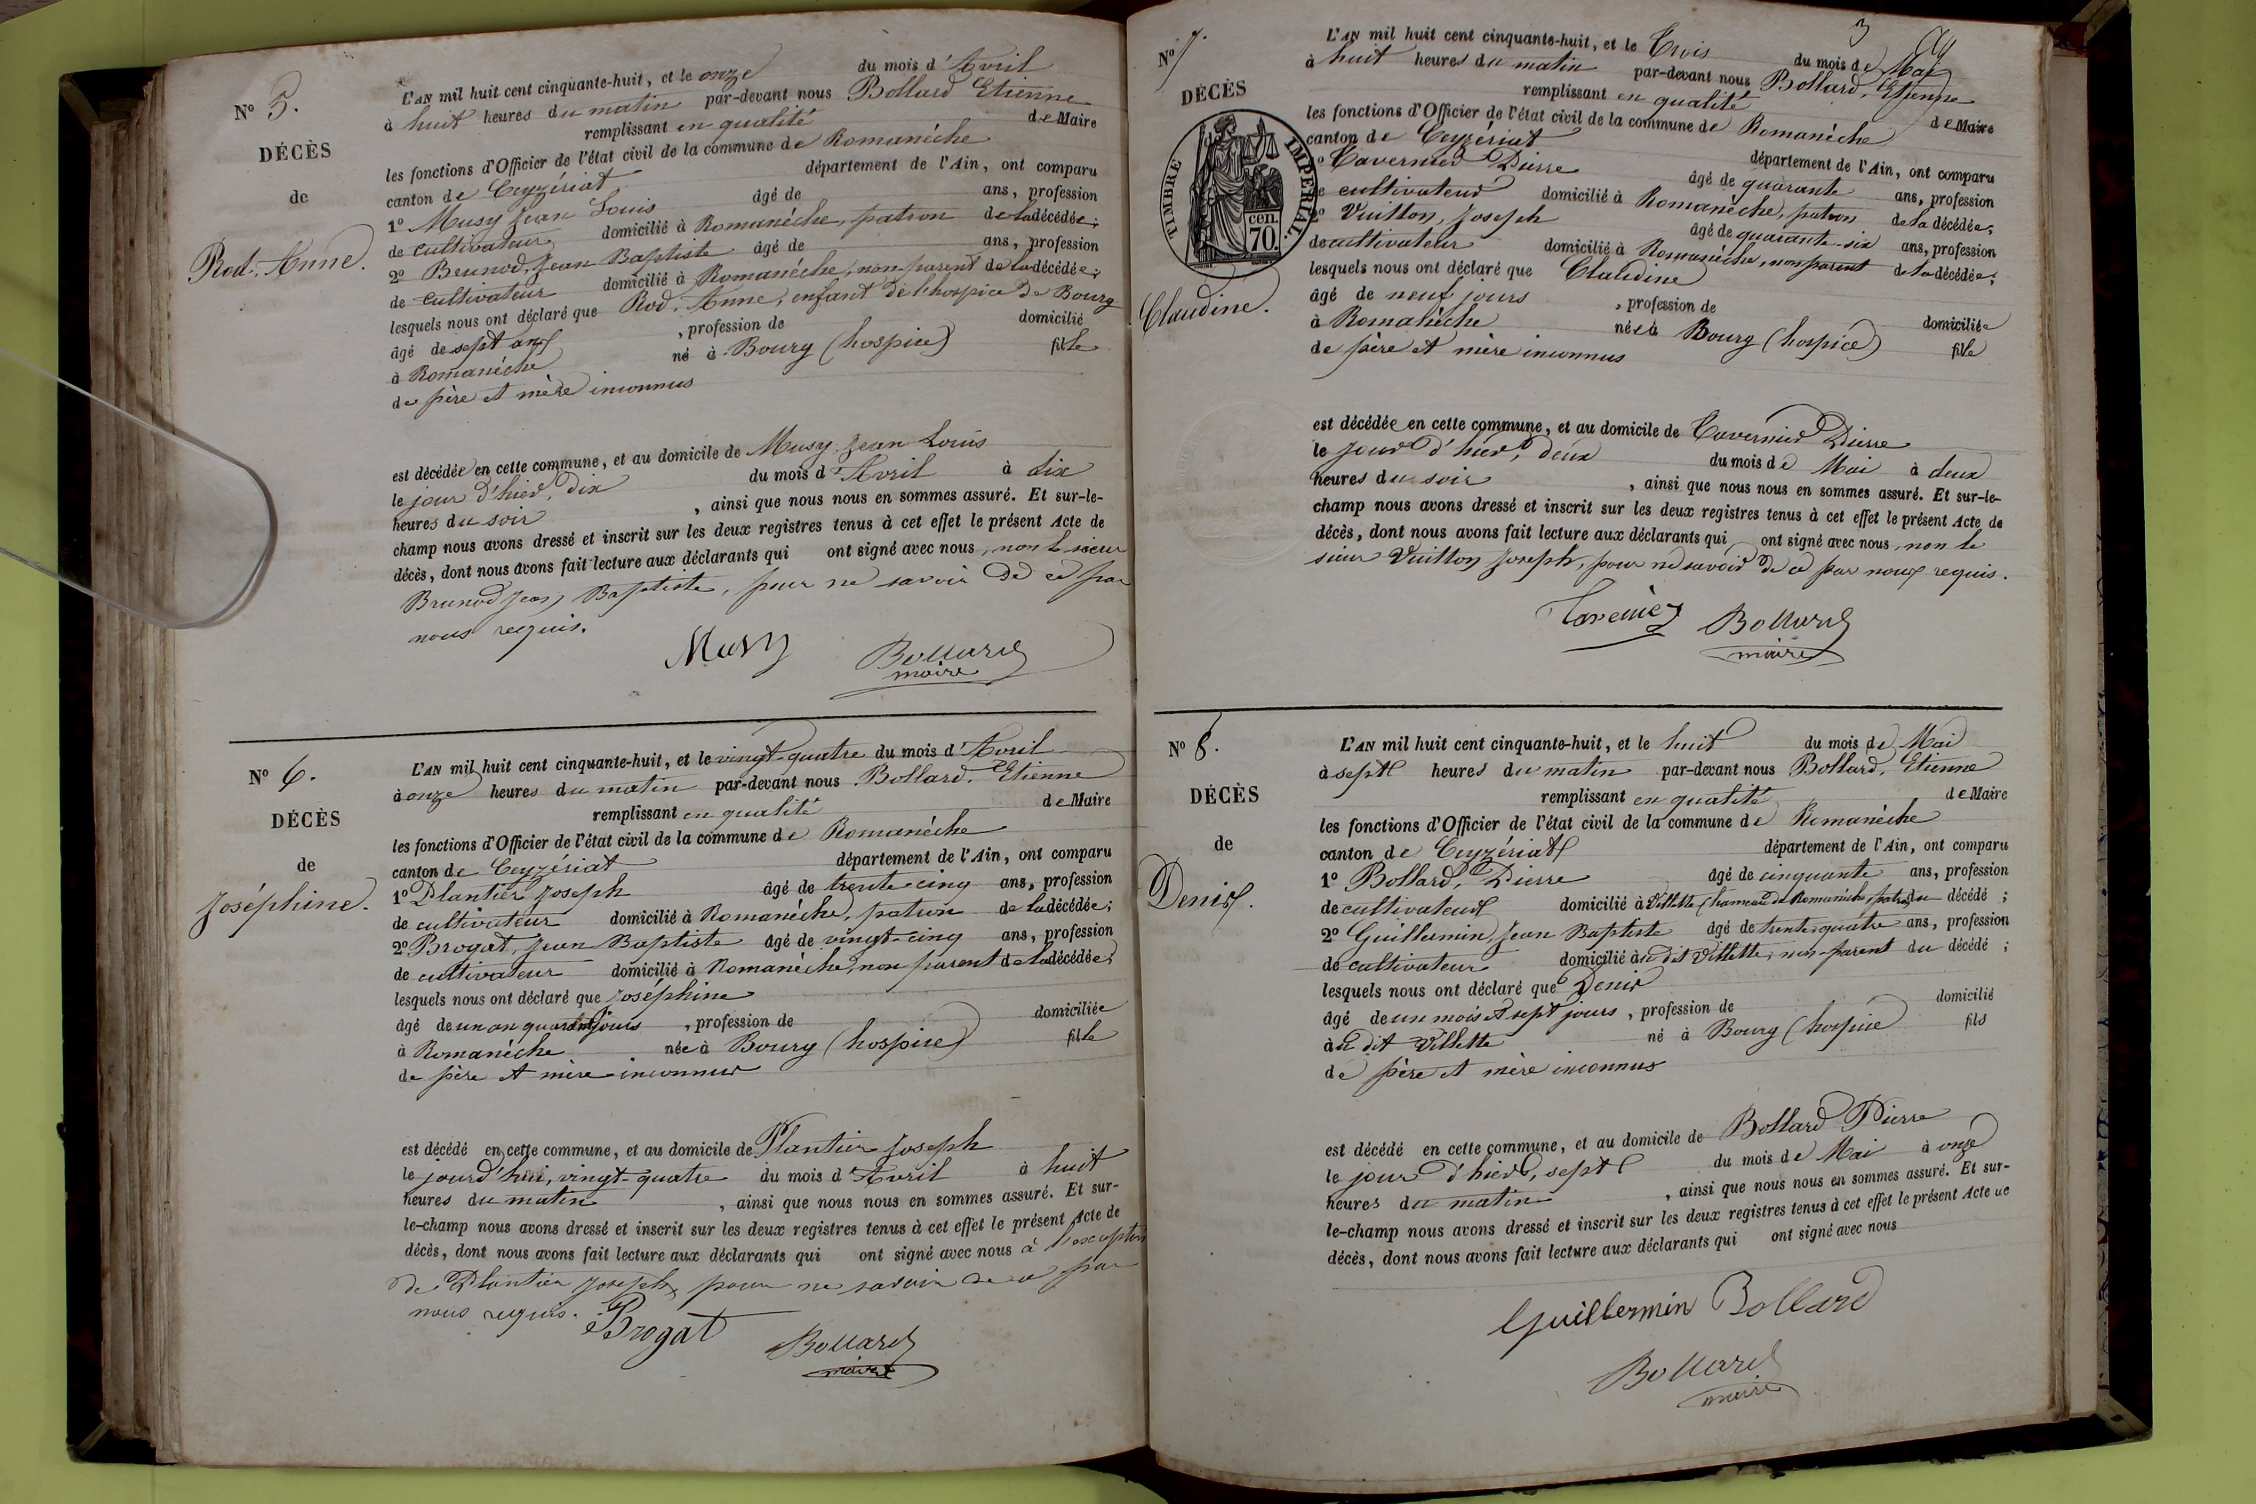 N° 5.
DÉCÈS
de
Rod, Anne.
L'AN mil huit cent cinquante-huit, et le onze du mois d'Avril
à huit heures du matin par-devant nous Bollard Etienne
remplissant en qualité de Maire
les fonctions d'Officier de l'état civil de la commune de Romanèche
canton de Ceyzériat département de l'Ain, ont comparu
1° Musy Jean Louis âgé de ans, profession
de cultivateur, domicilié à Romanèche, patron de la décédée;
2° Brunod, Jean Baptiste âgé de ans, profession
de cultivateur domicilié à Romanèche, non parent de la décédée;
lesquels nous ont déclaré que Rod, Anne, enfant de l'hospice de Bourg
âgé de sept ans , profession de domicilié
à Romanèche né à Bourg (hospice) fille
de père et mère inconnus
est décédée en cette commune, et au domicile de Musy Jean Louis
le jour d'hier, dix du mois d'Avril à dix
heures du soir , ainsi que nous nous en sommes assuré. Et sur-le-
champ nous avons dressé et inscrit sur les deux registres tenus à cet effet le présent Acte de
décès, dont nous avons fait lecture aux déclarants qui ont signé avec nous, non le sieur
Brunod Jean Baptiste, pour ne savoir de ce par
nous requis.
Musy Bollard
maire
N° 6.
DÉCÈS
de
Joséphine.
L'AN mil huit cent cinquante-huit, et le vingt-quatre du mois d'Avril
à onze heures du matin par-devant nous Bollard, Etienne
remplissant en qualité de Maire
les fonctions d'Officier de l'état civil de la commune de Romanèche
canton de Ceyzériat département de l'Ain, ont comparu
1° Plantier Joseph âgé de trente-cinq ans, profession
de cultivateur domicilié à Romanèche, patron de la décédée;
2° Brogat, Jean Baptiste âgé de vingt-cinq ans, profession
de cultivateur domicilié à Romanèche, non parent de la décédée;
lesquels nous ont déclaré que Joséphine
âgé de un an quarante jours , profession de domiciliée
à Romanèche née à Bourg (hospice) fille
de père et mère inconnus
est décédé en cette commune, et au domicile de Plantier Joseph
le jourd'hui, vingt-quatre du mois d'Avril à huit
heures du matin , ainsi que nous nous en sommes assuré. Et sur-
le-champ nous avons dressé et inscrit sur les deux registres tenus à cet effet le présent Acte de
décès, dont nous avons fait lecture aux déclarants qui ont signé avec nous à l'exception
de Plantier Joseph, pour ne savoir de ce par
nous requis.
Brogat Bollard
maire
3
N° 7.
DÉCÈS
TIMBRE IMPÉRIAL.
cen.
70.
Claudine.
L'AN mil huit cent cinquante-huit, et le Trois du mois de Mai
à huit heures du matin par-devant nous Bollard, Etienne
remplissant en qualité de Maire
les fonctions d'Officier de l'état civil de la commune de Romanèche
canton de Ceyzériat département de l'Ain, ont comparu
1° Tavernier Pierre âgé de quarante ans, profession
de cultivateur domicilié à Romanèche, patron de la décédée;
2° Vuitton, Joseph âgé de quarante-six ans, profession
de cultivateur domicilié à Romanèche, non parent de la décédée;
lesquels nous ont déclaré que Claudine
âgé de neuf jours , profession de domiciliée
à Romanèche née à Bourg (hospice) fille
de père et mère inconnus
est décédée en cette commune, et au domicile de Tavernier Pierre
le jour d'hier, deux du mois de Mai à deux
heures du soir , ainsi que nous nous en sommes assuré. Et sur-le-
champ nous avons dressé et inscrit sur les deux registres tenus à cet effet le présent Acte de
décès, dont nous avons fait lecture aux déclarants qui ont signé avec nous, non le
sieur Vuitton Joseph, pour ne savoir de ce par nous requis.
Tavernier Bollard
maire
N° 8.
DÉCÈS
de
Denis.
L'AN mil huit cent cinquante-huit, et le huit du mois de Mai
à sept heures du matin par-devant nous Bollard, Etienne
remplissant en qualité de Maire
les fonctions d'Officier de l'état civil de la commune de Romanèche
canton de Ceyzériat département de l'Ain, ont comparu
1° Bollard, Pierre âgé de cinquante ans, profession
de cultivateur domicilié à Villette (hameau de Romanèche, patron du décédé ;
2° Guillermin, Jean Baptiste âgé de trente-quatre ans, profession
de cultivateur domicilié à dit Villette, non-parent du décédé ;
lesquels nous ont déclaré que Denis
âgé de un mois et sept jours , profession de domicilié
à dit Villette né à Bourg (hospice fils
de père et mère inconnus
est décédé en cette commune, et au domicile de Bollard Pierre
le jour d'hier, sept du mois de Mai à onze
heures du matin , ainsi que nous nous en sommes assuré. Et sur-
le-champ nous avons dressé et inscrit sur les deux registres tenus à cet effet le présent Acte de
décès, dont nous avons fait lecture aux déclarants qui ont signé avec nous
Guillermin Bollard
Bollard
maire